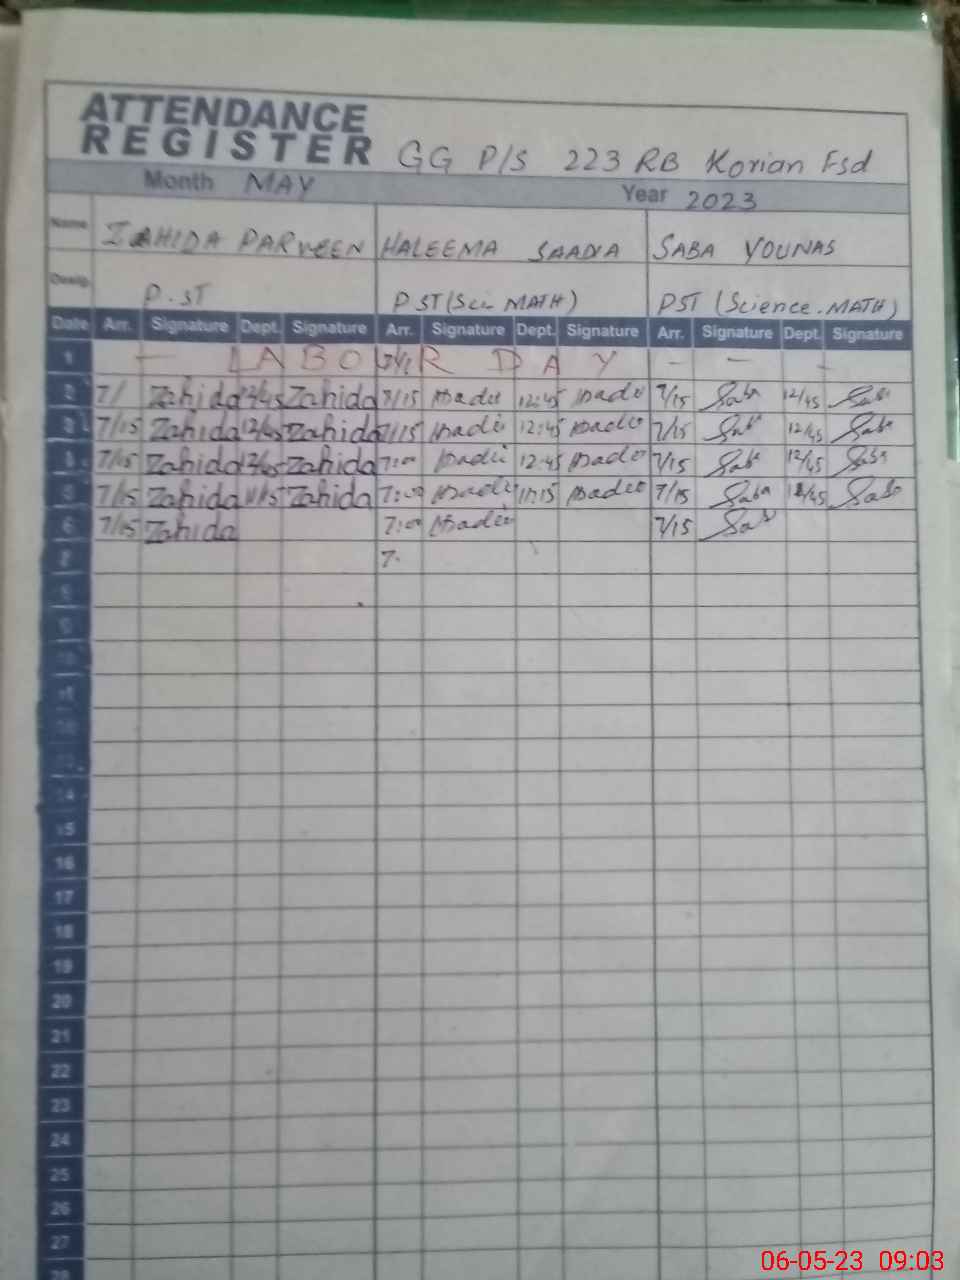 ATTENDANCE
REGISTER GG P/S 223 RB Korian Fsd
Month MAY Year 2023
Name ZAHIDA PARVEEN HALEEMA SAADIA SABA YOUNAS
Desig. P.ST PST (Sci. MATH) PST (Science.MATH)
Date Arr. Signature Dept. Signature Arr. Signature Dept. Signature Arr. Signature Dept. Signature
1 — LABOUR DAY — —
2 7/ Zahida 12/45 Zahida 7/15 12:45 7/15 Saba 12/45 Saba
3 7/15 Zahida 12/45 Zahida 7/15 12:45 7/15 Sab 12/45 Sab
4 7/15 Zahida 12/45 Zahida 7:00 12:45 7/15 Sab 12/45 Saba
5 7/15 Zahida 11/15 Zahida 7:00 11:15 7/15 Saba Saba
6 7/15 Zahida 7:00 7/15 Sab
7 7.
8
9
10
11
12
13
14
15
16
17
18
19
20
21
22
23
24
25
26
27
28
06-05-23 09:03